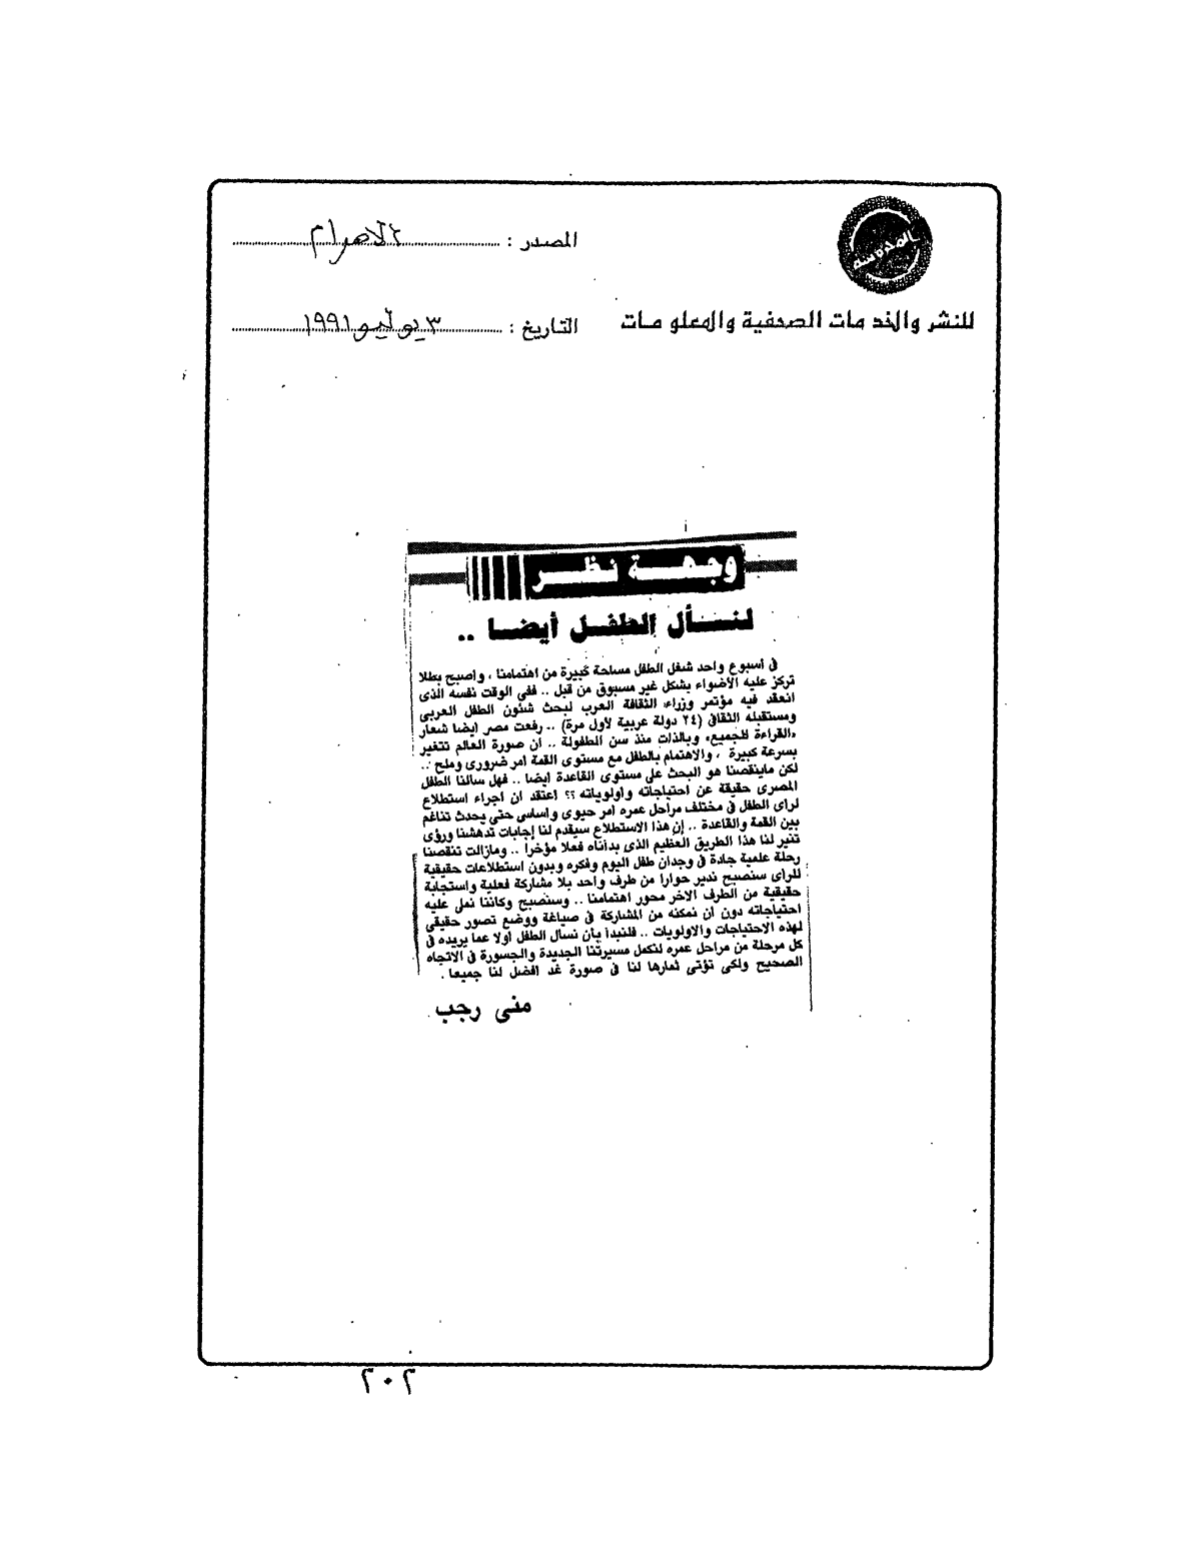 المدرسه
للنشر والخدمات الصحفية والمعلومات
المصدر : الاهرام
التاريخ : ٣ يوليو ١٩٩١
وجهة نظر
لنسأل الطفل أيضا ..
فى أسبوع واحد شغل الطفل مساحة كبيرة من اهتمامنا ، وأصبح بطلا
تركز عليه الأضواء بشكل غير مسبوق من قبل .. ففى الوقت نفسه الذى
انعقد فيه مؤتمر وزراء الثقافة العرب لبحث شئون الطفل العربى
ومستقبله الثقافى (٢٤ دولة عربية لأول مرة) .. رفعت مصر ايضا شعار
«القراءة للجميع» وبالذات منذ سن الطفولة .. ان صورة العالم تتغير
بسرعة كبيرة ، والاهتمام بالطفل مع مستوى القمة امر ضرورى وملح ..
لكن ماينقصنا هو البحث على مستوى القاعدة ايضا .. فهل سالنا الطفل
المصرى حقيقة عن احتياجاته واولوياته ؟؟ اعتقد ان اجراء استطلاع
لراى الطفل فى مختلف مراحل عمره امر حيوى واساسى حتى يحدث تناغم
بين القمة والقاعدة .. إن هذا الاستطلاع سيقدم لنا إجابات تدهشنا ورؤى
تنير لنا هذا الطريق العظيم الذى بدأناه فعلا مؤخرا .. ومازالت تنقصنا
رحلة علمية جادة فى وجدان طفل اليوم وفكره وبدون استطلاعات حقيقية
للراى سنصبح ندير حوارا من طرف واحد بلا مشاركة فعلية واستجابة
حقيقية من الطرف الاخر محور اهتمامنا .. وسنصبح وكاننا نملى عليه
احتياجاته دون ان نمكنه من المشاركة فى صياغة ووضع تصور حقيقى
لهذه الاحتياجات والاولويات .. فلنبدأ بأن نسأل الطفل اولا عما يريده فى
كل مرحلة من مراحل عمره لنكمل مسيرتنا الجديدة والجسورة فى الاتجاه
الصحيح ولكى تؤتى ثمارها لنا فى صورة غد افضل لنا جميعا .
منى رجب
٢٠٢